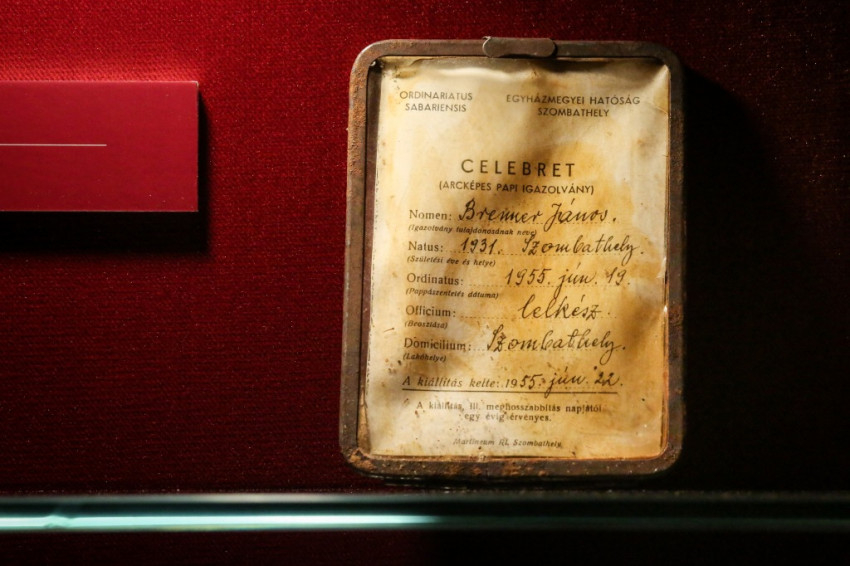 ORDINARIATUS
SABARIENSIS
EGYHÁZMEGYEI HATÓSÁG
SZOMBATHELY
CELEBRET
(ARCKÉPES PAPI IGAZOLVÁNY)
Nomen: Brenner János.
(Igazolvány tulajdonosának neve)
Natus: 1931. Szombathely.
(Születési éve és helye)
Ordinatus: 1955. jún. 19.
(Pappászentelés dátuma)
Officium: lelkész.
(Beosztása)
Domicilium: Szombathely.
(Lakóhelye)
A kiállítás kelte: 1955. jún. 22.
A kiállítás, ill. meghosszabbítás napjától
egy évig érvényes.
Martineum Rt. Szombathely